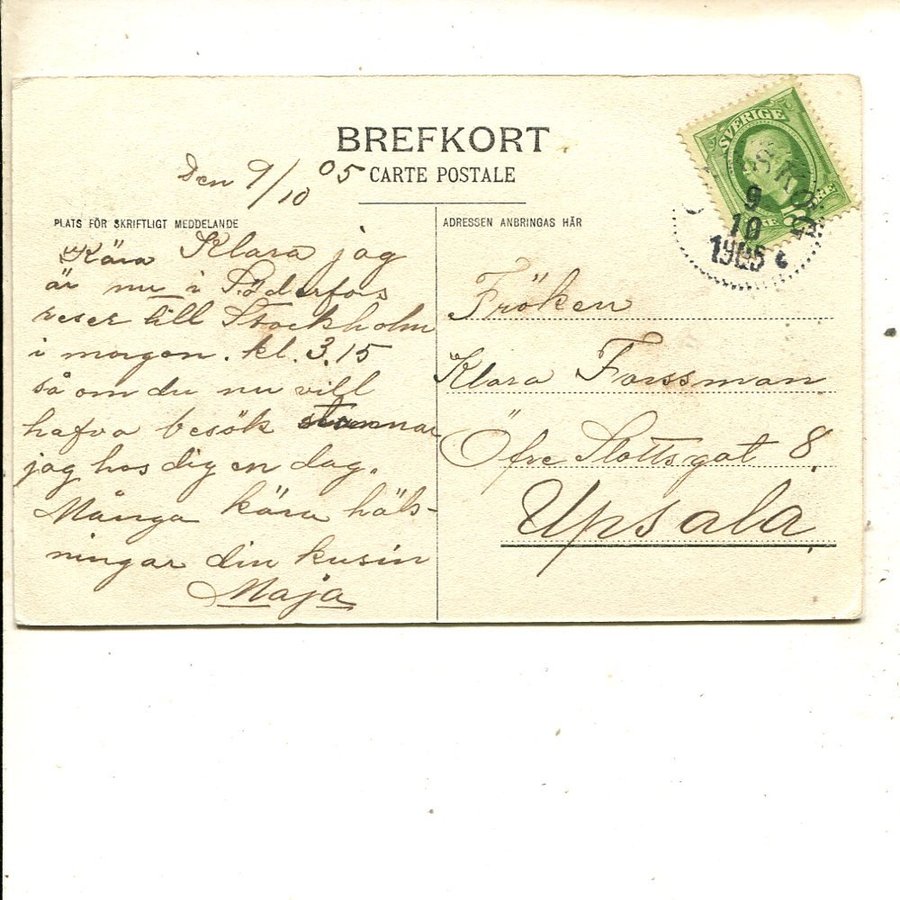 BREFKORT
CARTE POSTALE
Den 9/10 05
PLATS FÖR SKRIFTLIGT MEDDELANDE
Kära Klara jag
är nu i Söderfors
reser till Stockholm
i morgon. kl. 3.15
så om du nu vill
hafva besök stannar
jag hos dig en dag.
Många kära häls-
ningar din kusin
Maja
ADRESSEN ANBRINGAS HÄR
Fröken
Klara Forssman
Öfre Slottsgat 8
Upsala
SVERIGE
9
10
1905